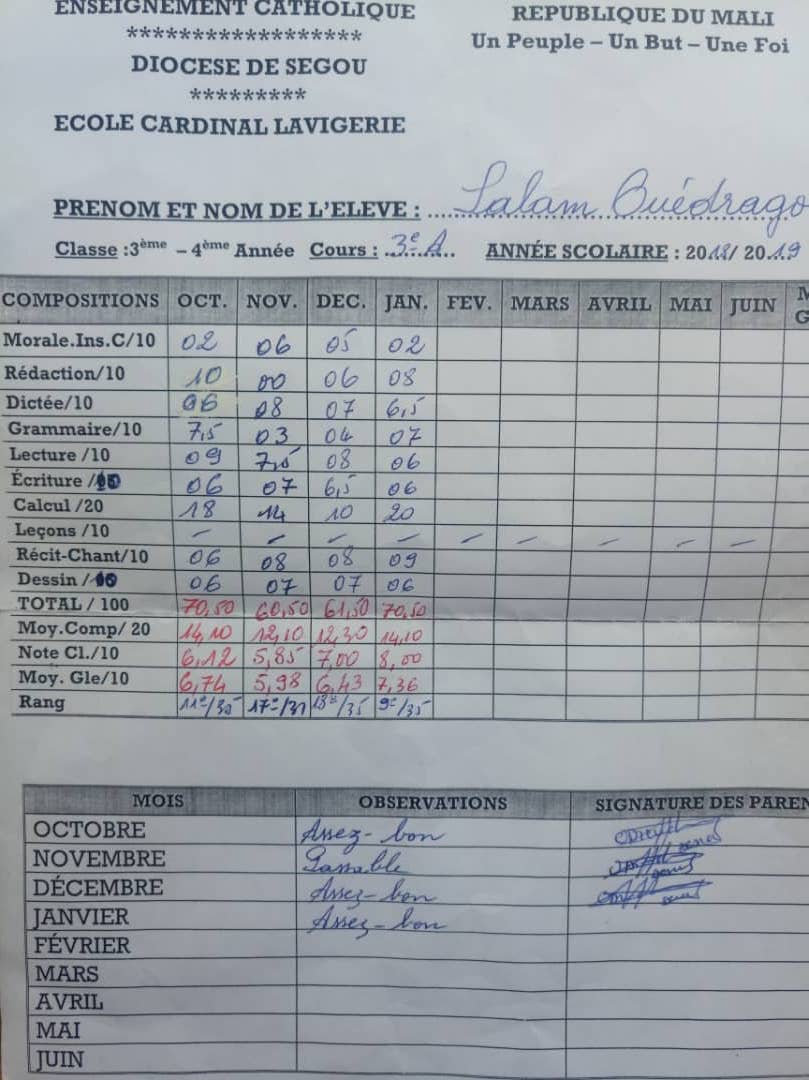 ENSEIGNEMENT CATHOLIQUE
******************
DIOCESE DE SEGOU
*********
ECOLE CARDINAL LAVIGERIE
REPUBLIQUE DU MALI
Un Peuple – Un But – Une Foi
PRENOM ET NOM DE L'ELEVE : Salam Ouédrago
Classe :3ème – 4ème Année Cours : 3e A ANNÉE SCOLAIRE : 2018/ 2019
COMPOSITIONS OCT. NOV. DEC. JAN. FEV. MARS AVRIL MAI JUIN
Morale.Ins.C/10 02 06 05 02
Rédaction/10 10 00 06 08
Dictée/10 06 08 07 6,5
Grammaire/10 7,5 03 04 07
Lecture /10 09 7,5 08 06
Écriture /10 06 07 6,5 06
Calcul /20 18 14 10 20
Leçons /10 – – – – – – – – –
Récit-Chant/10 06 08 08 09
Dessin /10 06 07 07 06
TOTAL / 100 70,50 60,50 61,50 70,50
Moy.Comp/ 20 14,10 12,10 12,30 14,10
Note Cl./10 6,12 5,85 7,00 8,00
Moy. Gle/10 6,74 5,98 6,43 7,36
Rang 11e/35 17e/31 18e/35 9e/35
MOIS OBSERVATIONS SIGNATURE DES PAREN
OCTOBRE Assez-bon
NOVEMBRE Passable
DÉCEMBRE Assez-bon
JANVIER Assez-bon
FÉVRIER
MARS
AVRIL
MAI
JUIN